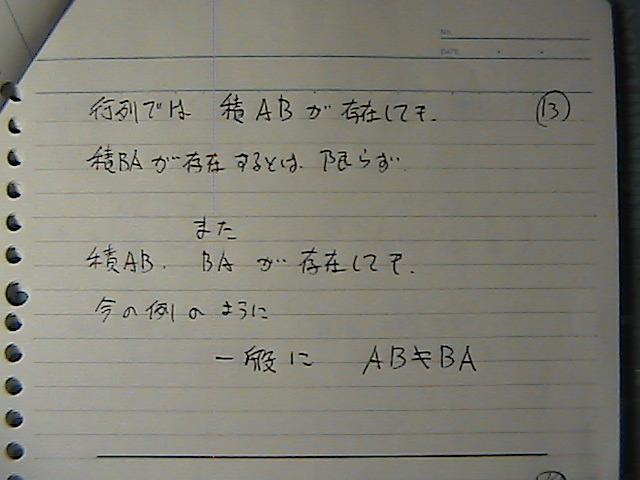 No.
DATE
行列では 積ABが存在しても、 ⑬
積BAが存在するとは、限らず
また
積AB、BAが存在しても、
今の例のように
一般に AB≠BA